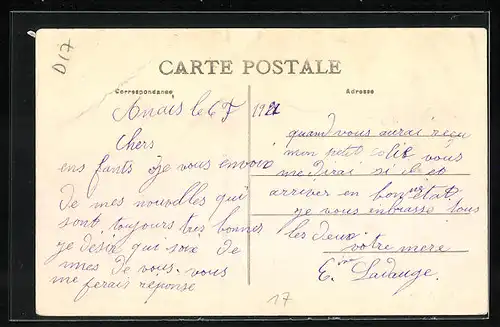 D17
CARTE POSTALE
Correspondance
Adresse
Anais le 6 7 1921
chers
ens fants je vous envoix
de mes nouvelles qui
sont toujours tres bonnes
je desir qui soix de
mes de vous. vous
me ferais réponse
quand vous aurai reçu
mon petit colis vous
me dirai si il et
arriver en bon état
je vous inbrasse tous
les deux.
votre mere
E.
17